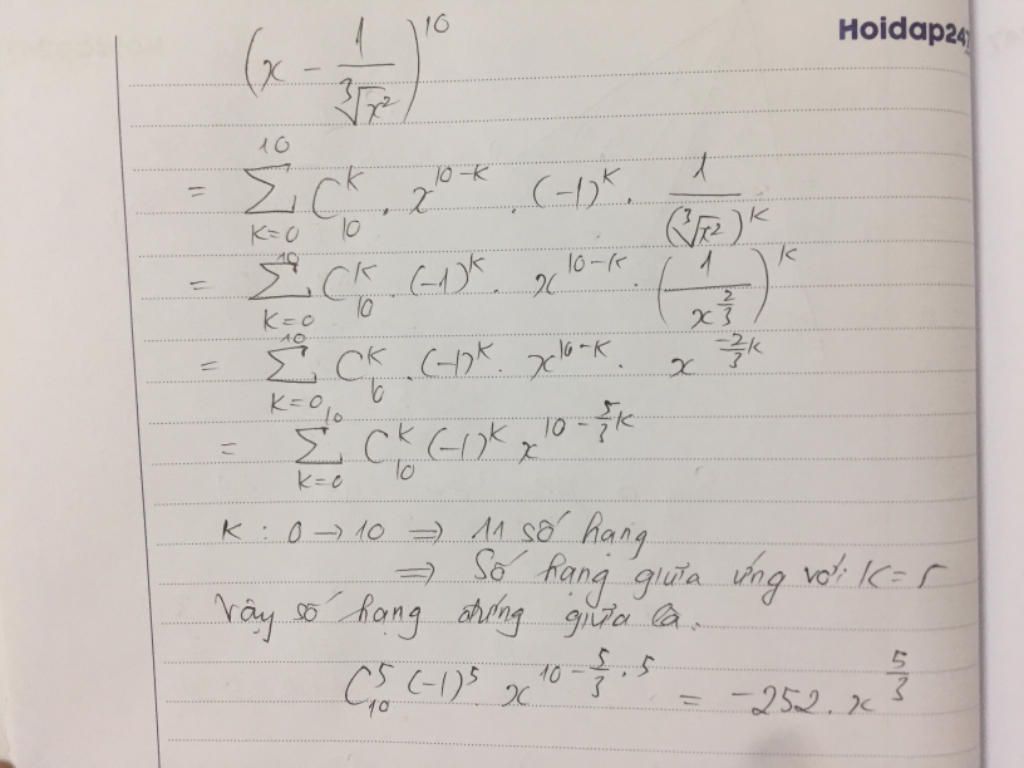 Hoidap247
(x - 1/∛x²)^10
= ∑_{K=0}^{10} C_{10}^{K} . x^{10-K} . (-1)^K . 1/(∛x²)^K
= ∑_{K=0}^{10} C_{10}^{K} . (-1)^K . x^{10-K} . (1/x^{2/3})^K
= ∑_{K=0}^{10} C_{10}^{K} . (-1)^K . x^{10-K} . x^{-2/3 K}
= ∑_{K=0}^{10} C_{10}^{K} (-1)^K x^{10 - 5/3 K}
K : 0 → 10 ⇒ 11 số hạng
⇒ Số hạng giữa ứng với K = 5
Vậy số hạng đứng giữa là.
C_{10}^{5} (-1)^5 . x^{10 - 5/3 . 5} = -252 . x^{5/3}